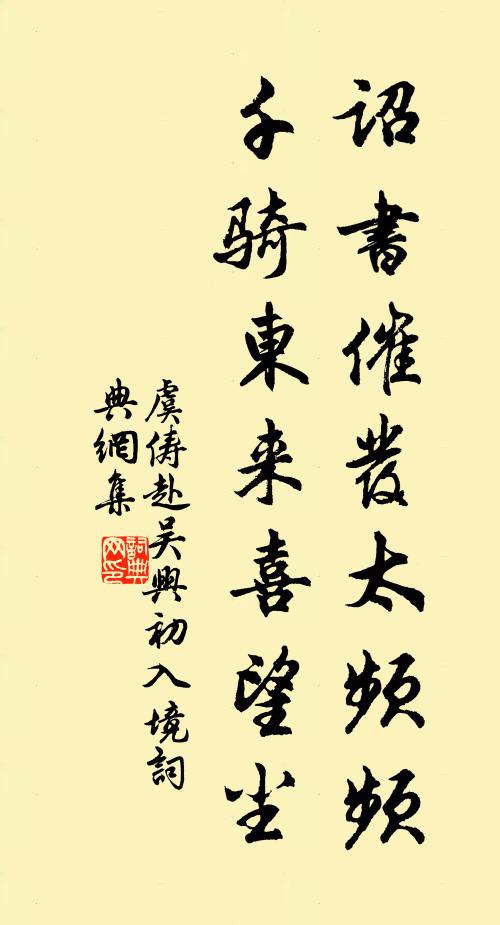 詔書催發太頻頻
千騎東来喜望尘
虞儔赴吴興初入境詞
典網集
詞典网印